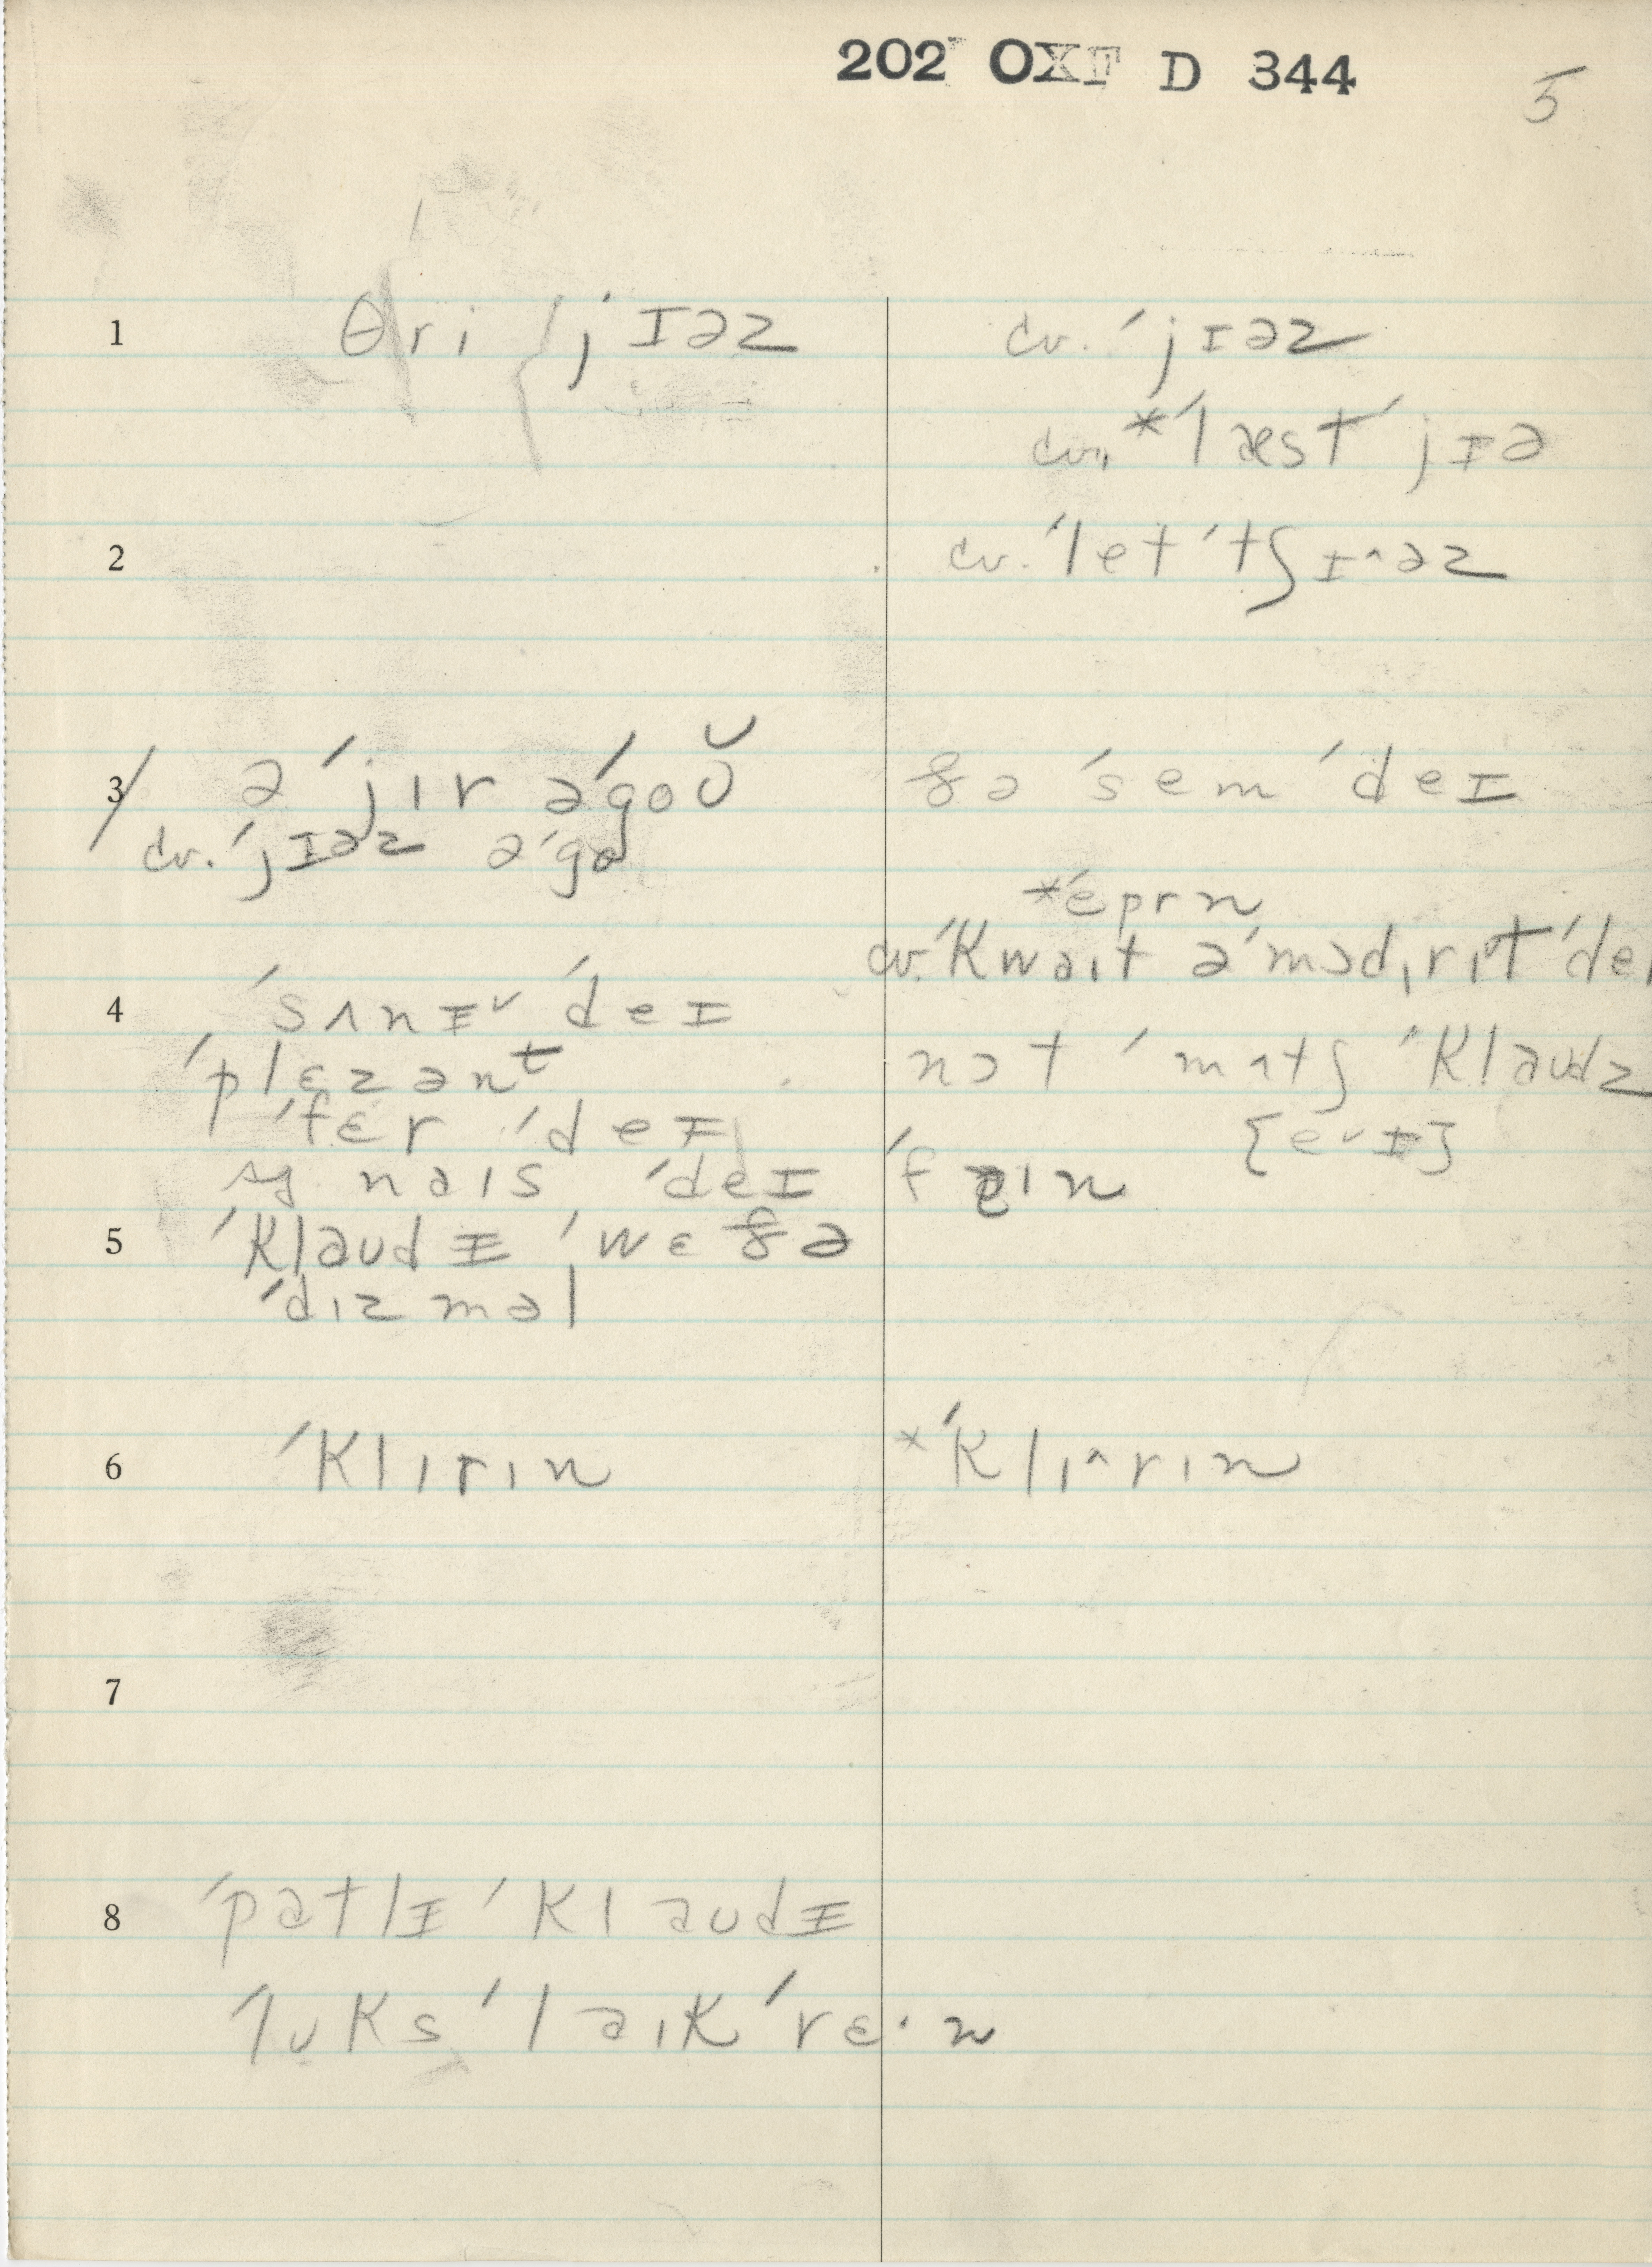 202 OXF D 344
5
1 θri ˈjɪəz
cv. ˈjɪəz
cv. *ˈlæst ˈjɪə
2 cv. ˈlet ˈtʃɪ^əz
3 ə ˈjɪr əˈgoʊ̆
cv. ˈjɪəz əˈgə
ðə ˈsem ˈdeɪ
*ˈeprn
cv. ˈkwəit ə ˈmɔdɪrɪt ˈdeɪ
4 ˈsʌnɪˇ ˈdeɪ
ˈplɛzənt
ˈfɛr ˈdeɪ
sg nəis ˈdeɪ
nɔt ˈmʌtʃ ˈkləudz
[eˇɪ]
ˈfəin
5 ˈkləudɪ ˈwɛðə
ˈdɪzməl
6 ˈklɪrɪn
*ˈklɪ^rɪn
7
8 ˈpatlɪ ˈkləudɪ
ˈlʊks ˈləik ˈrɛ·n